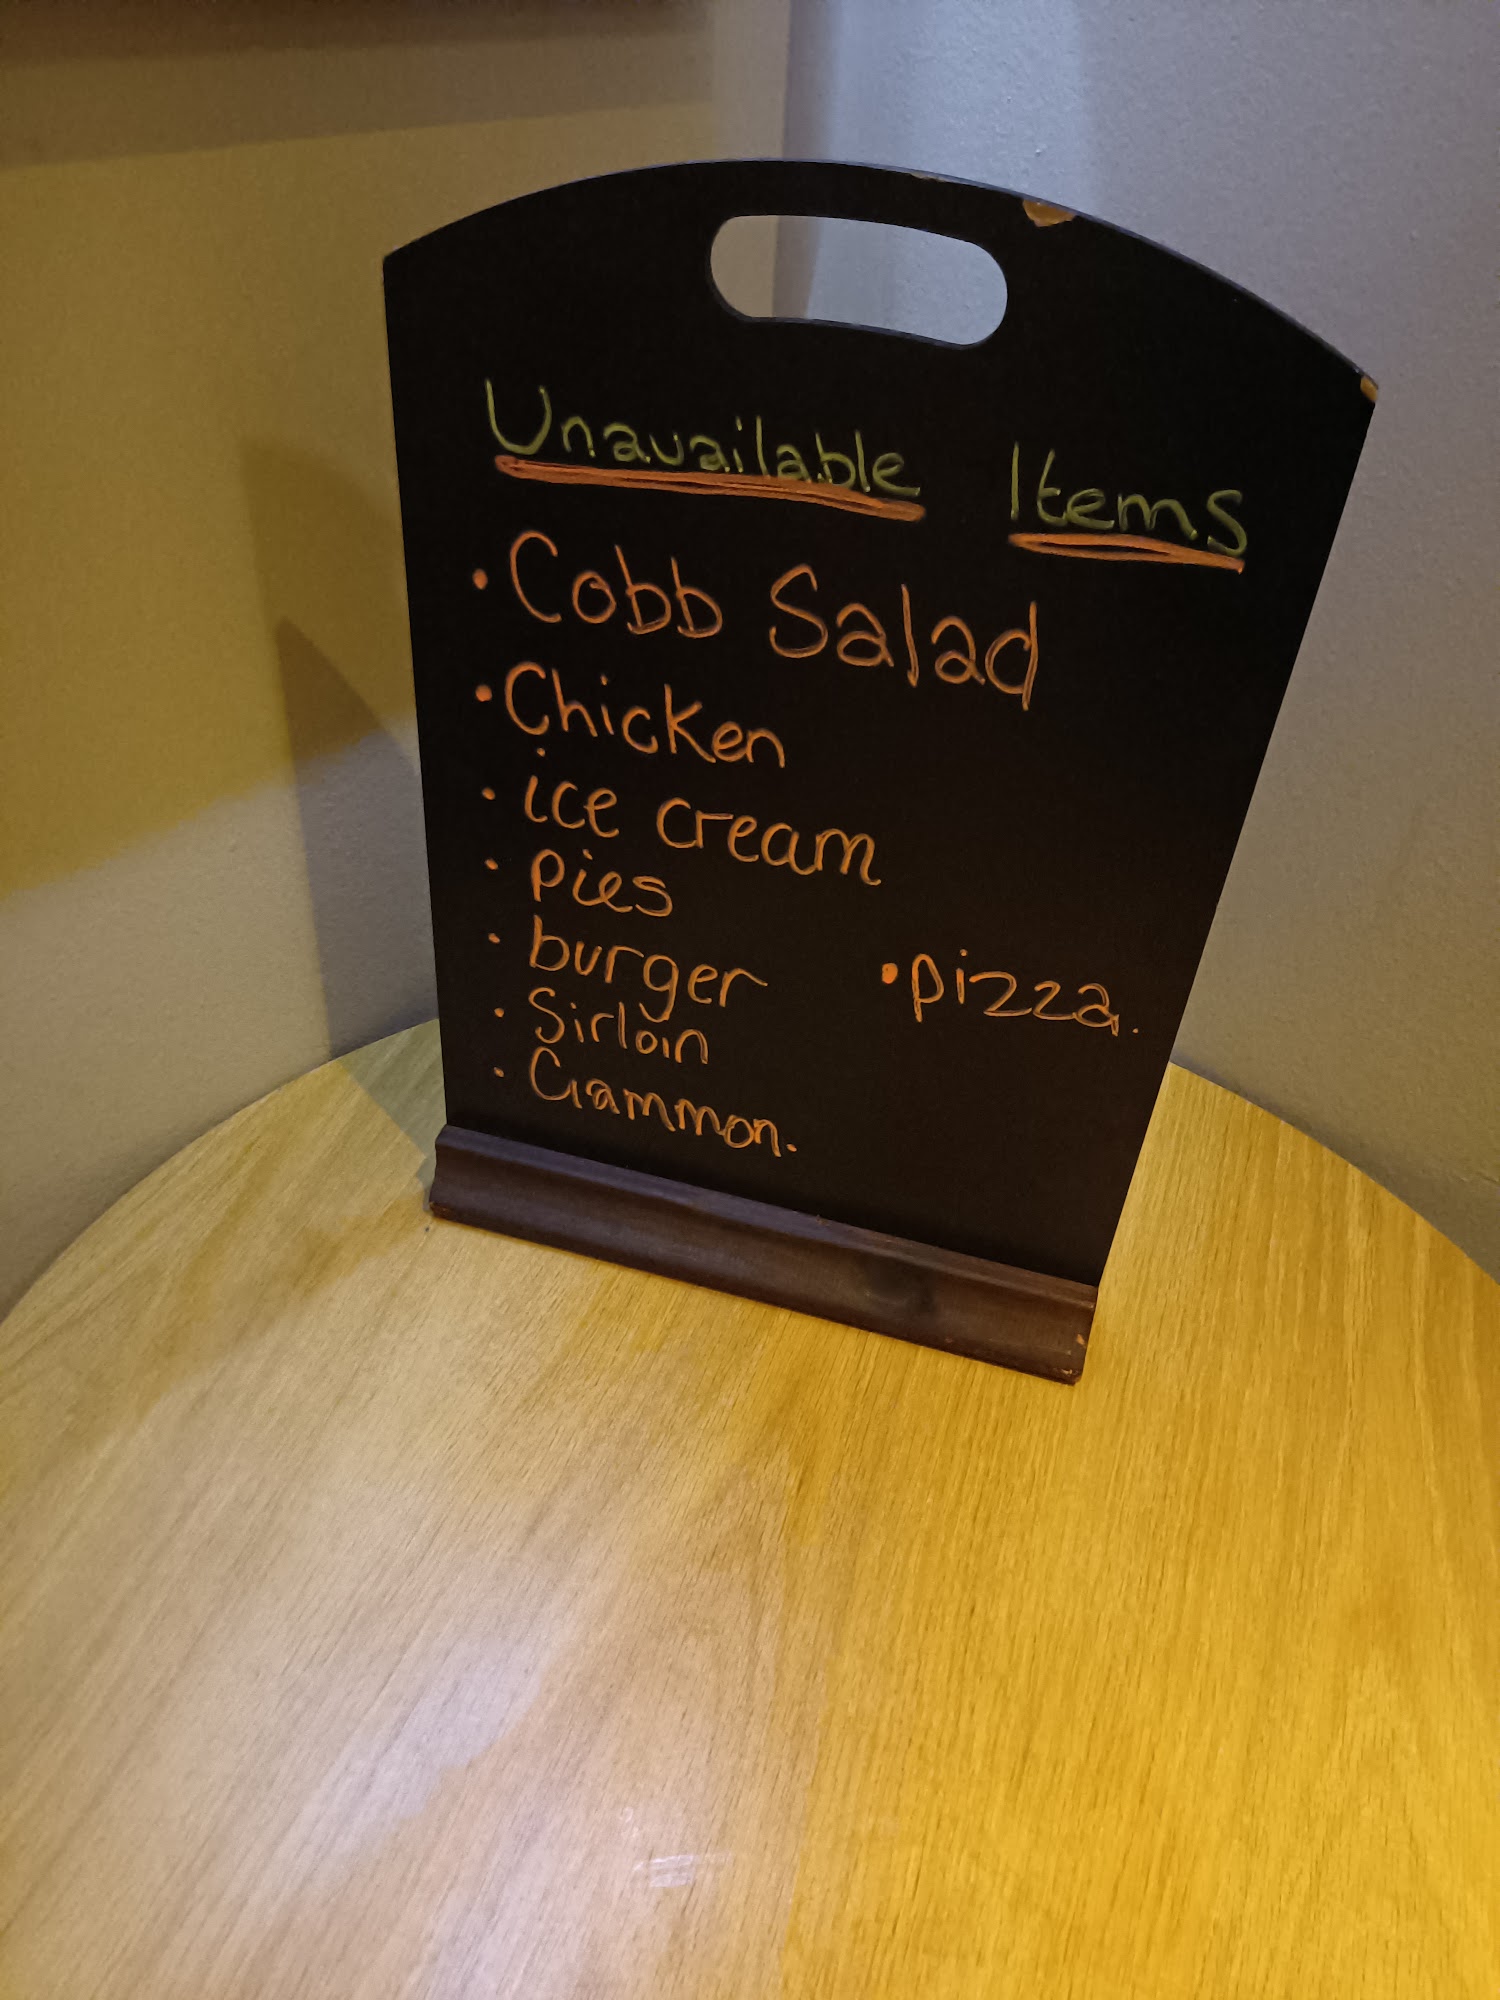 Unavailable Items
• Cobb Salad
• Chicken
• ice cream
• pies
• burger
• pizza.
• Sirloin
• Gammon.